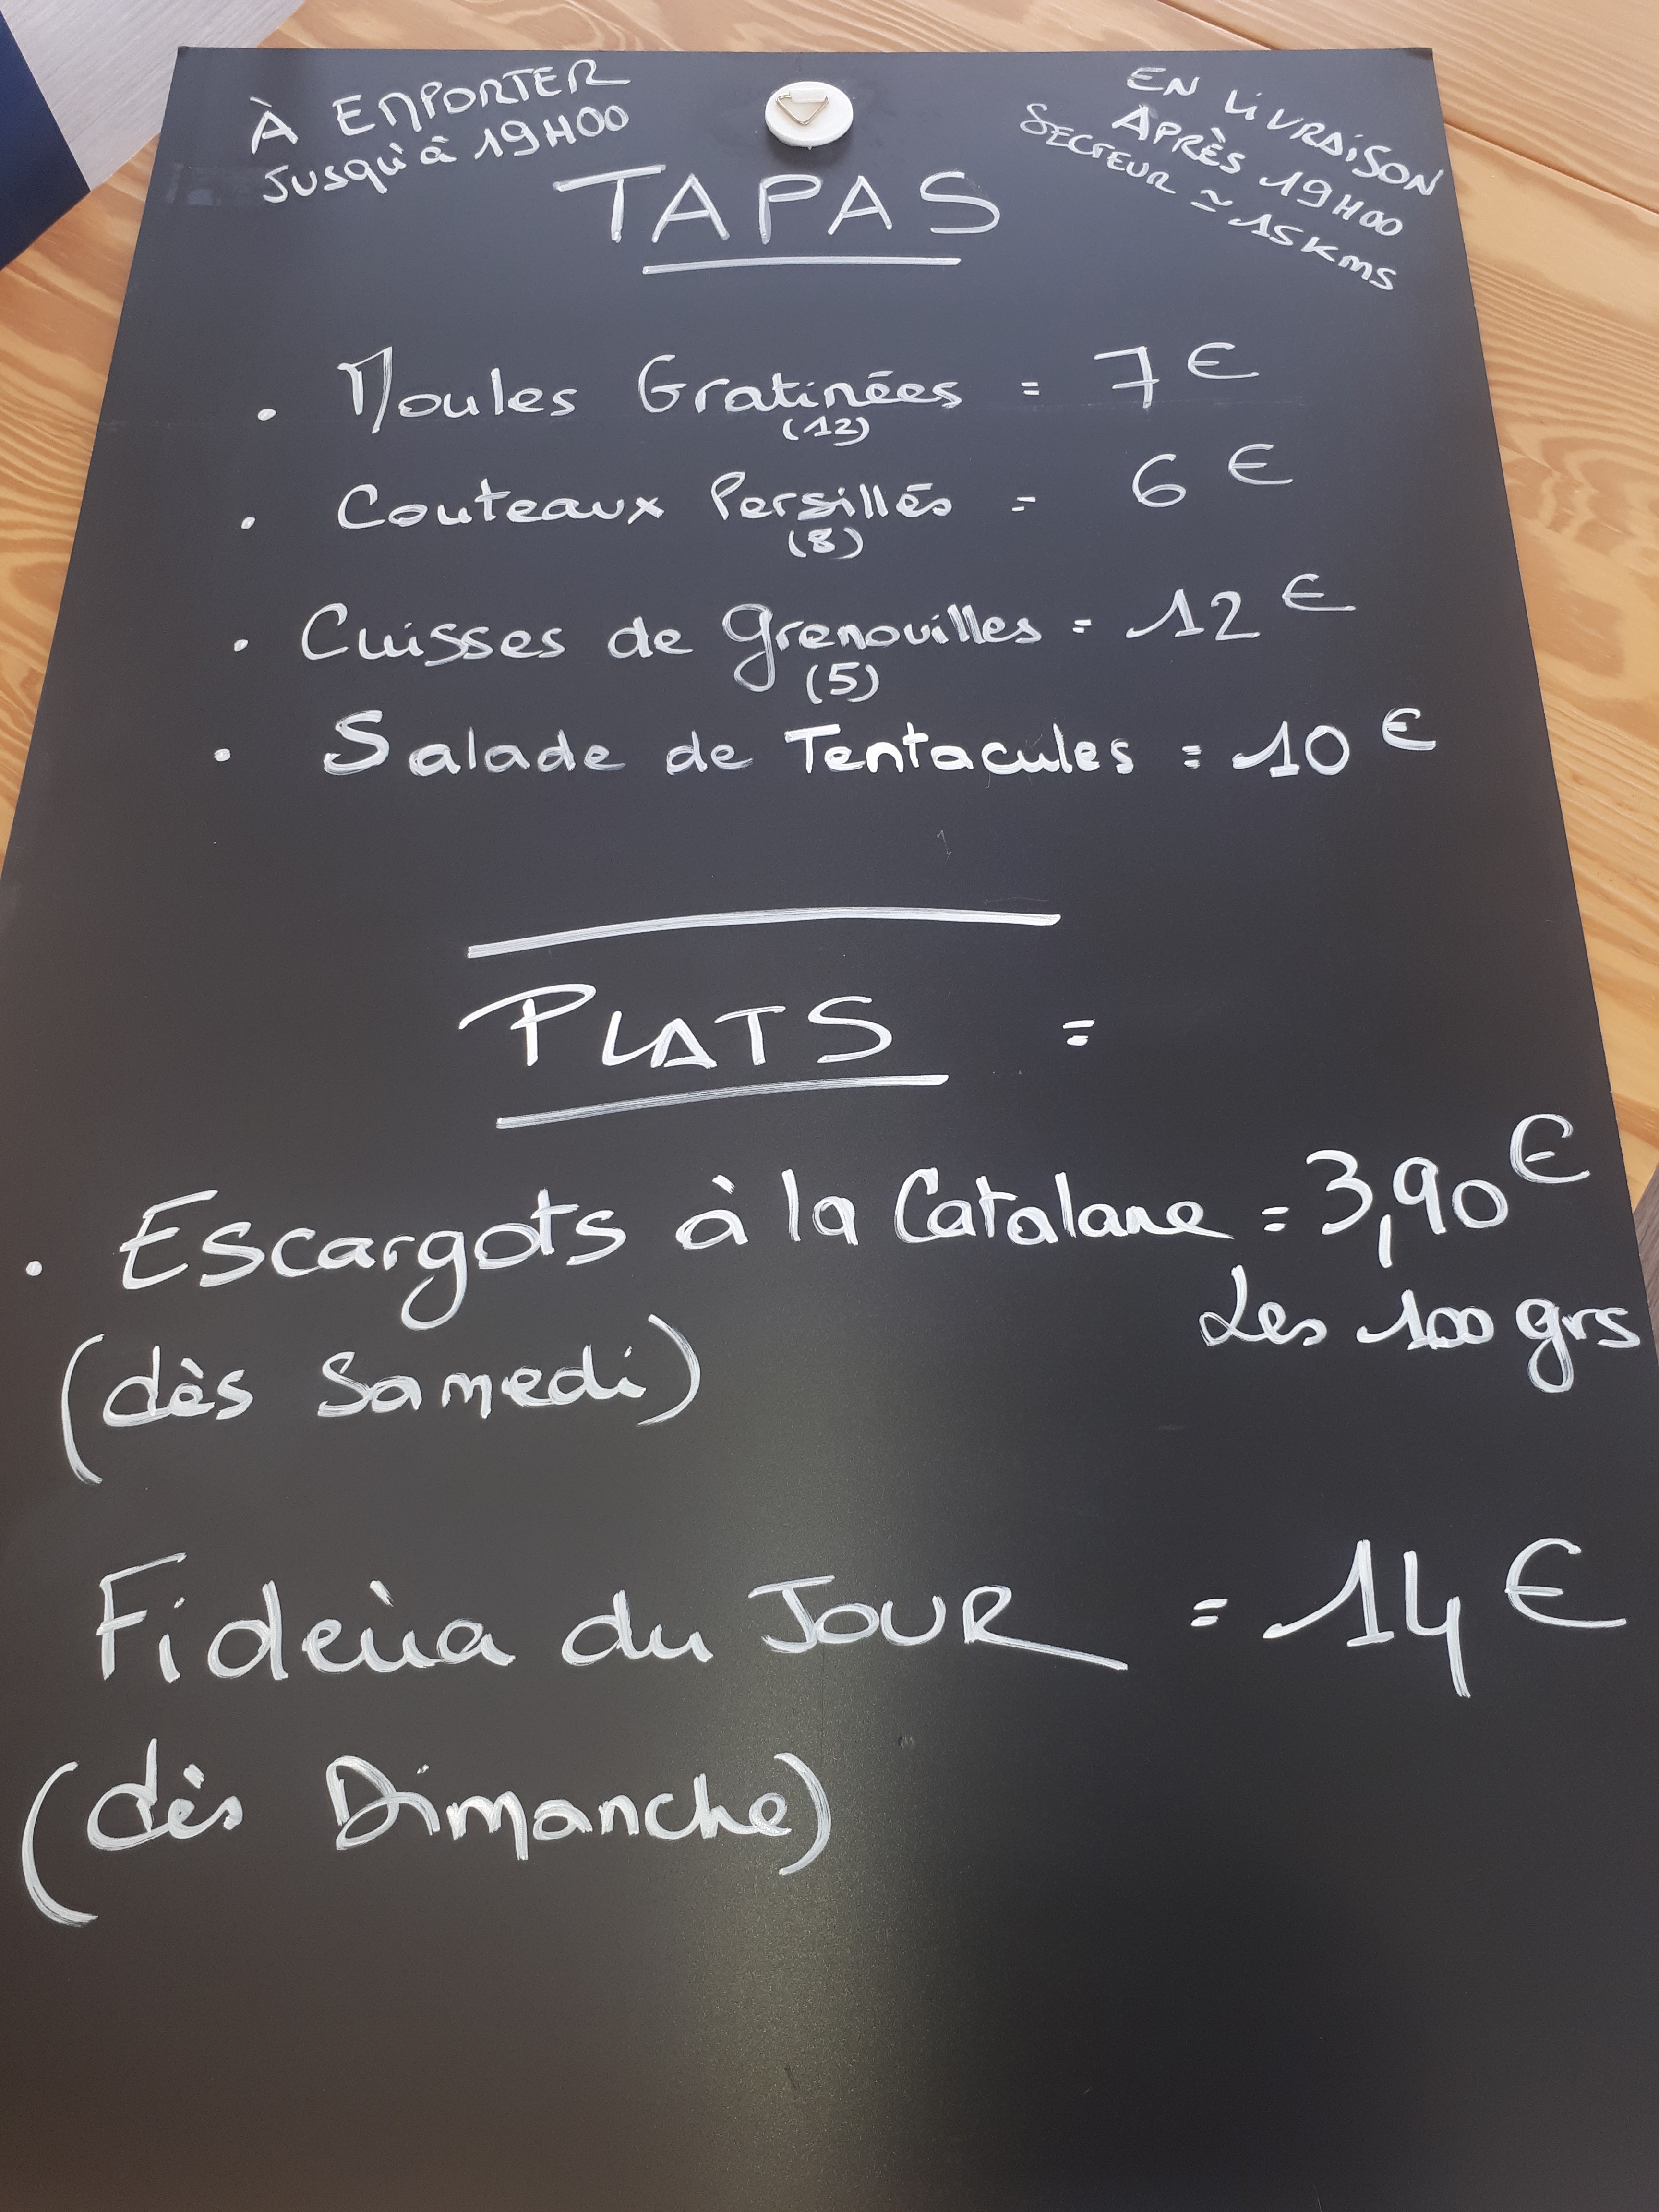 À EMPORTER
JUSQU'à 19H00
EN LIVRAISON
APRÈS 19H00
SECTEUR ≃ 15 Kms
TAPAS
. Moules Gratinées = 7 €
(12)
. Couteaux Persillés = 6 €
(8)
. Cuisses de grenouilles = 12 €
(5)
. Salade de Tentacules = 10 €
PLATS =
. Escargots à la Catalane = 3,90 €
Les 100 grs
(dès Samedi)
Fideùa du JOUR = 14 €
(dès Dimanche)